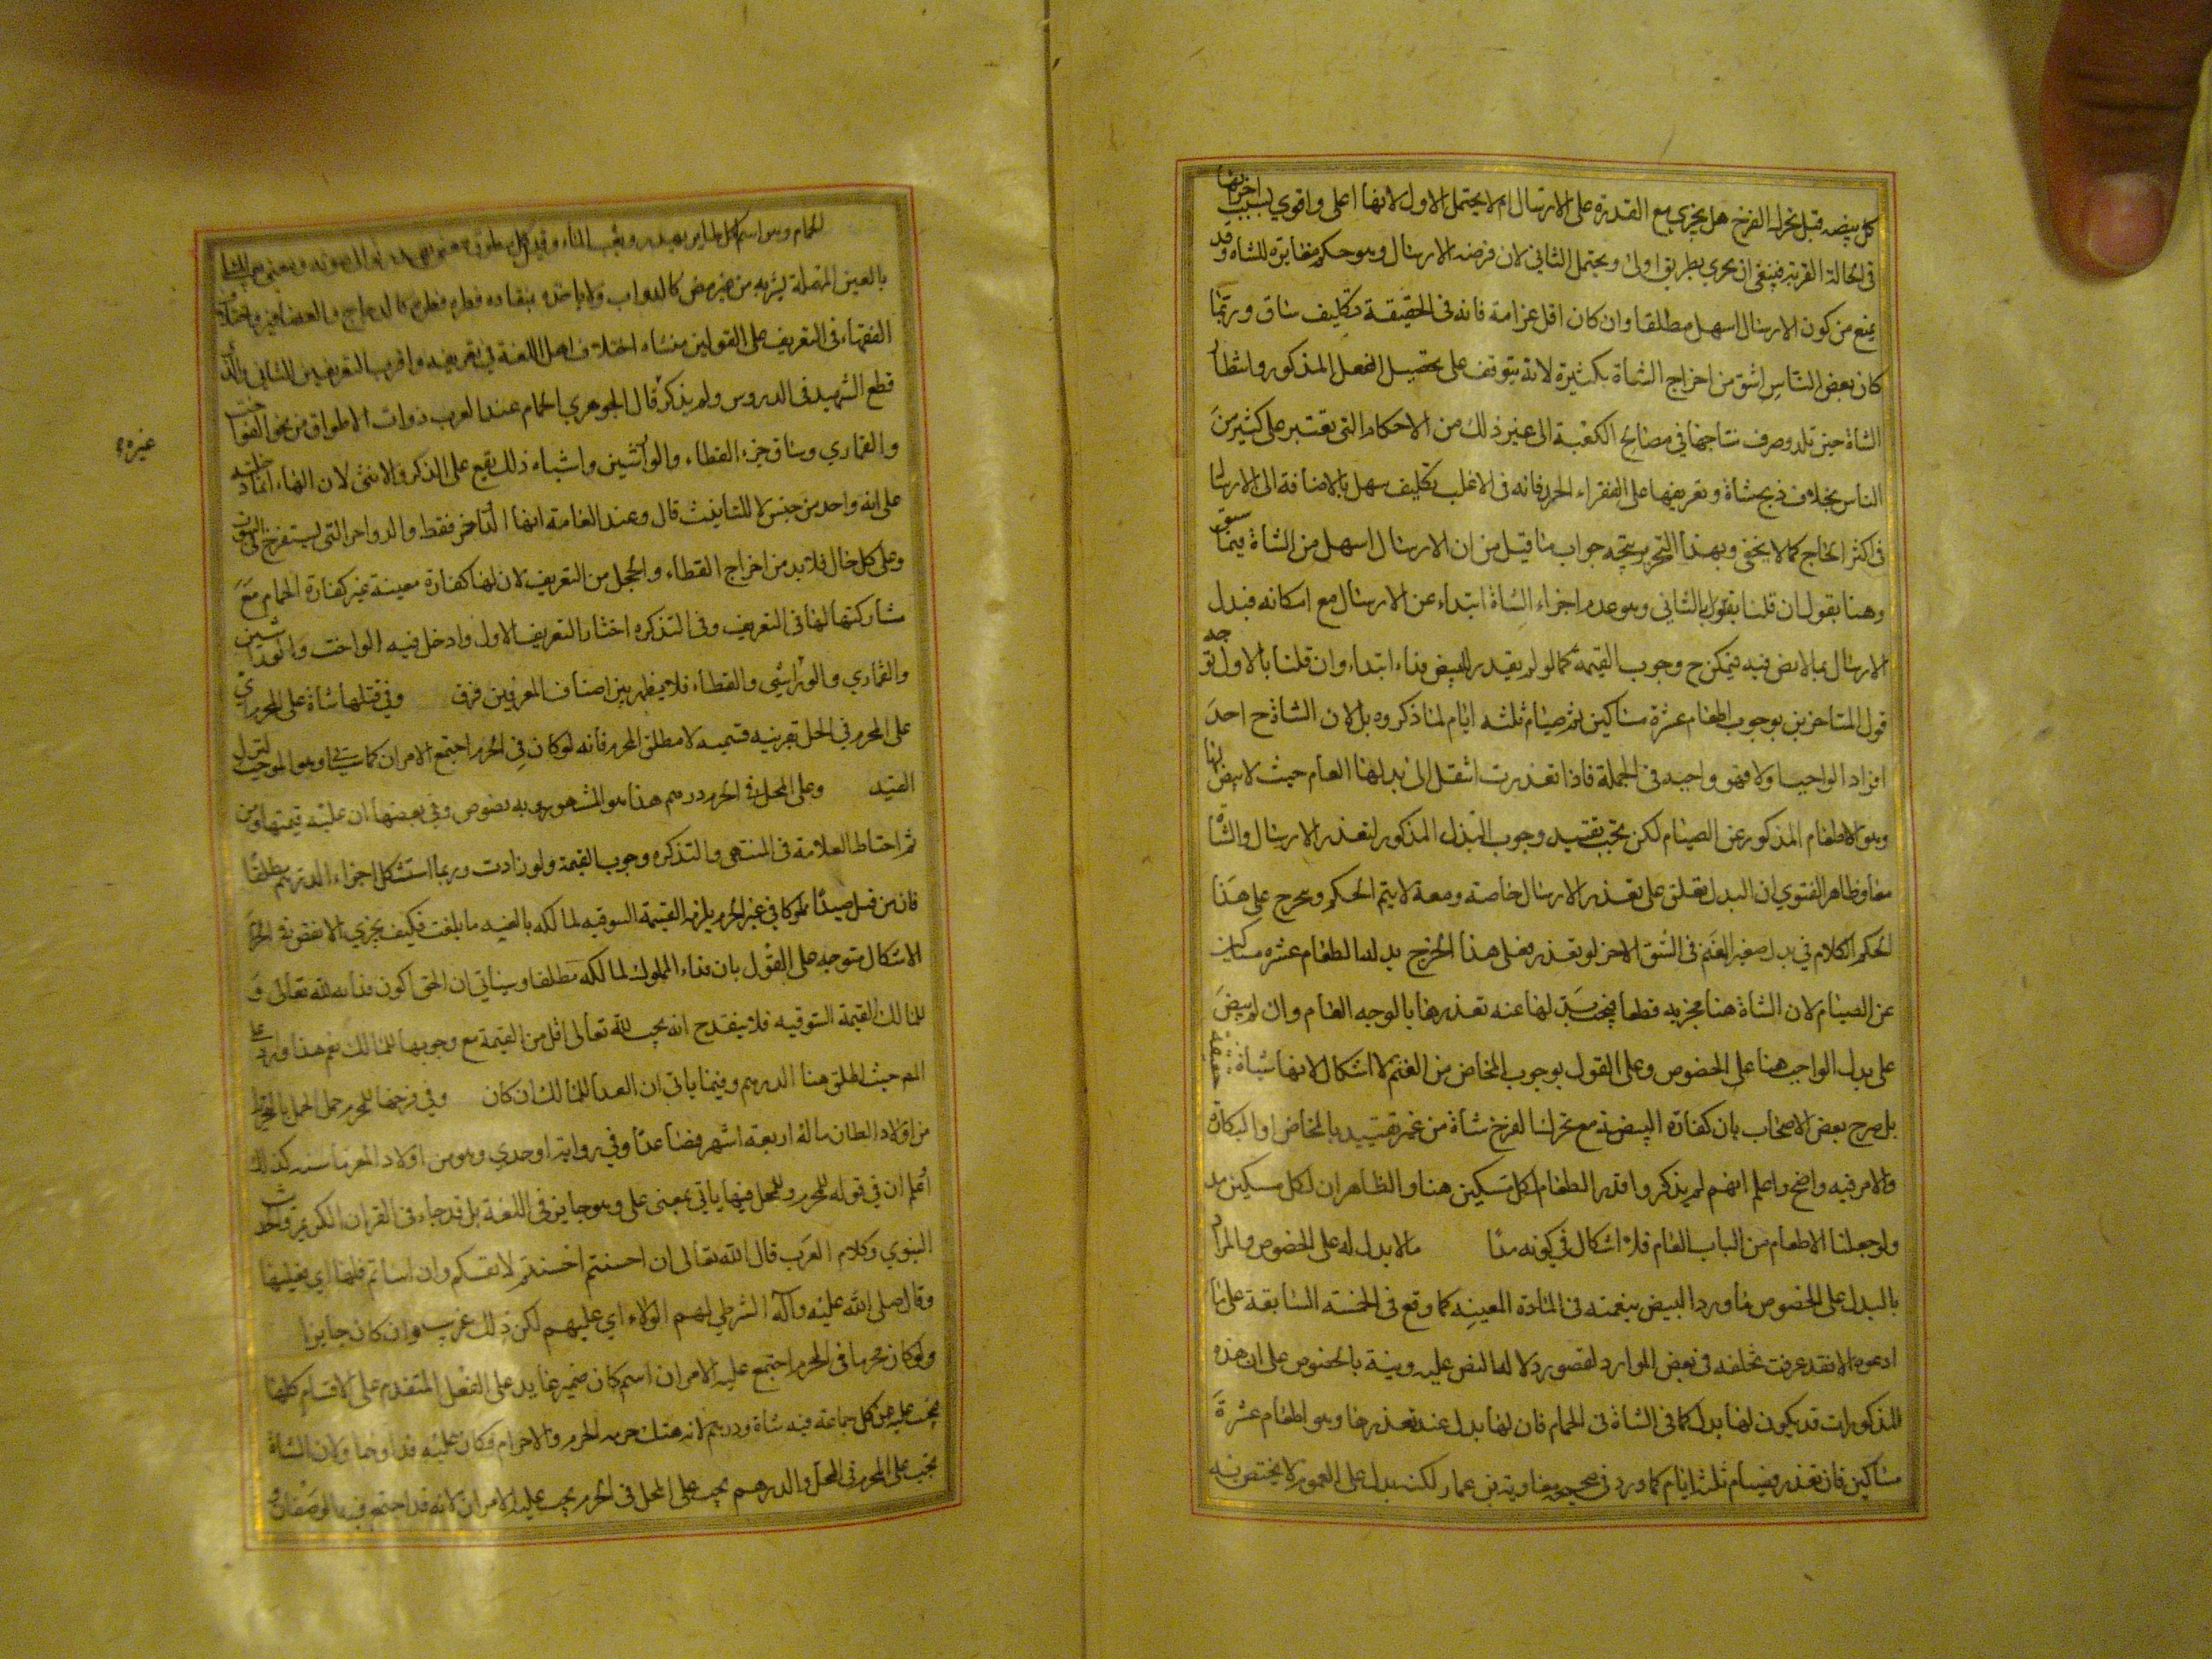 كل بيضه قبل تحرك الفرخ هل يجزي مع القدرة على الارسال ام لا يحتمل الاول لانها اعلى واقوي بسبب اخراجها
في الحالة القريبة فينبغي ان يجزي بطريق اولى ويحتمل الثاني لان فرضه الارسال وهو حكم مغايرة للشاه وقد
يمنع من كون الارسال اسهل مطلقا وان كان اقل غرامة فانه في الحقيقة تكليف شاق وربما
كان بعض الناس اشق من اخراج الشاة بكثيرة لانه يتوقف على تحصيل الفحل المذكور وانتظار
الشاة حين تلد وصرف نتاجها في مصالح الكعبة الى غير ذلك من الاحكام التي تعتبر على كثير من
الناس بخلاف ذبح شاة وتفريقها على الفقراء الحرم فانه في الاغلب تكليف سهل بالاضافة الى الارسال
في اكثر الحاج كما لا يخفى وبهذا التحرير يتجه جواب ما قيل من ان الارسال اسهل من الشاة فيما سبق
وهنا يقول ان قلنا بقول بالثاني وهو عدم اجزاء الشاة ابتداء عن الارسال مع امكانه فبدل
الارسال بما لا نص فيه فيمكن ح وجوب القيمة كما لو لم يقدر للبيض فداء ابتداء وان قلنا بالاول توجه
قول المتاخرين بوجوب اطعام عشرة مساكين ثم صيام ثلثه ايام لما ذكروه بل لان الشاة ح احد
افراد الواجب ولا فهو واجبه في الجملة فاذا تعذرت انتقل الى بدلها العام حيث لا نص لها
وهو الاطعام المذكور عن الصيام لكن يجب تقييد وجوب البدل المذكور لتعذر الارسال والشاة
معا وظاهر الفتوي ان البدل تعلق على تعذر الارسال خاصة ومعه لا يتم الحكم ويخرج على هذا
الحكم الكلام في بدل صغير الغنم في الشق الاخر لو تعذر فعلى هذا الخرج بدلها اطعام عشره مساكين
عن الصيام لان الشاة هنا مجزيه قطعا لها عنه تعذرها بالوجه العام وان لم ينص
على بدل الواجب هنا على الخصوص وعلى القول بوجوب المخاض من الغنم لا اشكال لانها شاة حقيقة
بل صرح بعض الاصحاب بان كفارة البيضة مع تحرك الفرخ شاة من غير تقييد بالمخاض او البكارة
والامر فيه واضح واعلم انهم لم يذكروا قدر الطعام لكل مسكين هنا والظاهر ان لكل مسكين مد
ولو جعلنا الاطعام من الباب العام فلا اشكال في كونه مدا ما لا بدل له على الخصوص والمراد
بالبدل على الخصوص ما ورد البيض بنعمته في المادة المعينه كما وقع في الخمسه السابقة على ما
ادعوه الا فقد عرفت تخلفه في بعض الموارد لقصور دلالة النص عليه وبينة بالخصوص على ان هذه
المذكورات قد يكون لها بدل كما في الشاة في الحمام فان لها بدل عند تعذرها وهو اطعام عشرة
مساكين فان تعذر فصيام ثلثة ايام كما ورد في صحيحه معاوية بن عمار لكنه بدل على العموم لا يختص به
الحمام وهو اسم كل طاير
بالعين المهملة يشربه من غير مص كالدواب ولا ياخذه بمنقاره قطرة قطرة كالدجاج والعصافير
الفقهاء في التعريف على القولين منشاه اختلاف اهل اللغة في تعريفه واقرب التعريفين الثاني
قطع الشهيد في الدروس ولم يذكر قال الجوهري الحمام عند العرب ذوات الاطواق من نحو الفواخت
غيره
والقماري وساق حر والقطاء والوراشين واشباه ذلك يقع على الذكر والانثى لان الهاء انما دخلته
على انه واحد من جنس لا للتانيث قال وعند العامة انها الدواجن فقط والدواجن التي يستفرخ في البيوت
وعلى كل حال فلا بد من اخراج القطاء والحجل من التعريف لان لها كفارة معينة غير كفارة الحمام مع
مشاركتها لها في التعريف وفي التذكره اختار التعريف الاول وادخل فيه الفواخت والوراشين
والقماري والوراشي والقطاء فلا يظهر بين اصناف المعرفين فرق وفي قتلها شاة على المحرم اي
على المحرم في الحل بقرينه قسيمه لا مطلق المحرم فانه لو كان في الحرم اجتمع الامران كما سياتي وهو الموجب لترك
القيد وعلى المحل في الحرم درهم هذا هو المشهور وبه نصوص وفي بعضها ان عليه قيمتها ومن
ثم احتاط العلامة في المنتهى والتذكره وجوب القيمة ولو زادت وربما استشكل اجزاء الدرهم مطلقا
فان من قتل صيدا مملوكا في غير الحرم يلزمه القيمة السوقيه لمالكه بالغيه ما بلغت فكيف يجزي الانقص في الحرم
الاشكال متوجه على القول بان فداء المملوك لمالكه مطلقا وسياتي ان الحق كون فدائه لله تعالى و
للمالك القيمة السوقيه فلا ينقدح انه يجب لله تعالى اقل من القيمة مع وجوبها للمالك نعم هذا وارد على
المص حيث اطلق هنا الدرهم وفيما ياتي ان الفداء للمالك ان كان وفي فرخها للمحرم حمل الحمل بالتحريك
من اولاد الضان ماله اربعة اشهر فصاعدا وفي رواية او جدي وهو من اولاد المعز ما سنه كذلك
اعلم ان في قوله للمحرم وللمحل فيها ياتي بمعنى على وهو جايز في اللغة بل قد جاء في القران الكريم
النبوي وكلام العرب قال الله تعالى ان احسنتم احسنتم لانفسكم وان اساتم فلها اي فعليها
وقال صلى الله عليه وآله اشترطي لهم الولاء اي عليهم لكن ذلك غريب وان كان جايزا
ولو كان محرما في الحرم اجتمع عليه الامران اسم كان ضمير عايد على الفعل المتقدم على الاقسام كلها
فيجب عليه من كل حمامة فيه شاة ودرهم لانه هتك حرمة الحرم والاحرام فكان عليه فداوهما ولان الشاة
يجب على المحرم في الحل والدرهم يجب على المحل في الحرم يجب عليه الامران لانه قد اجتمع فيه الوصفان